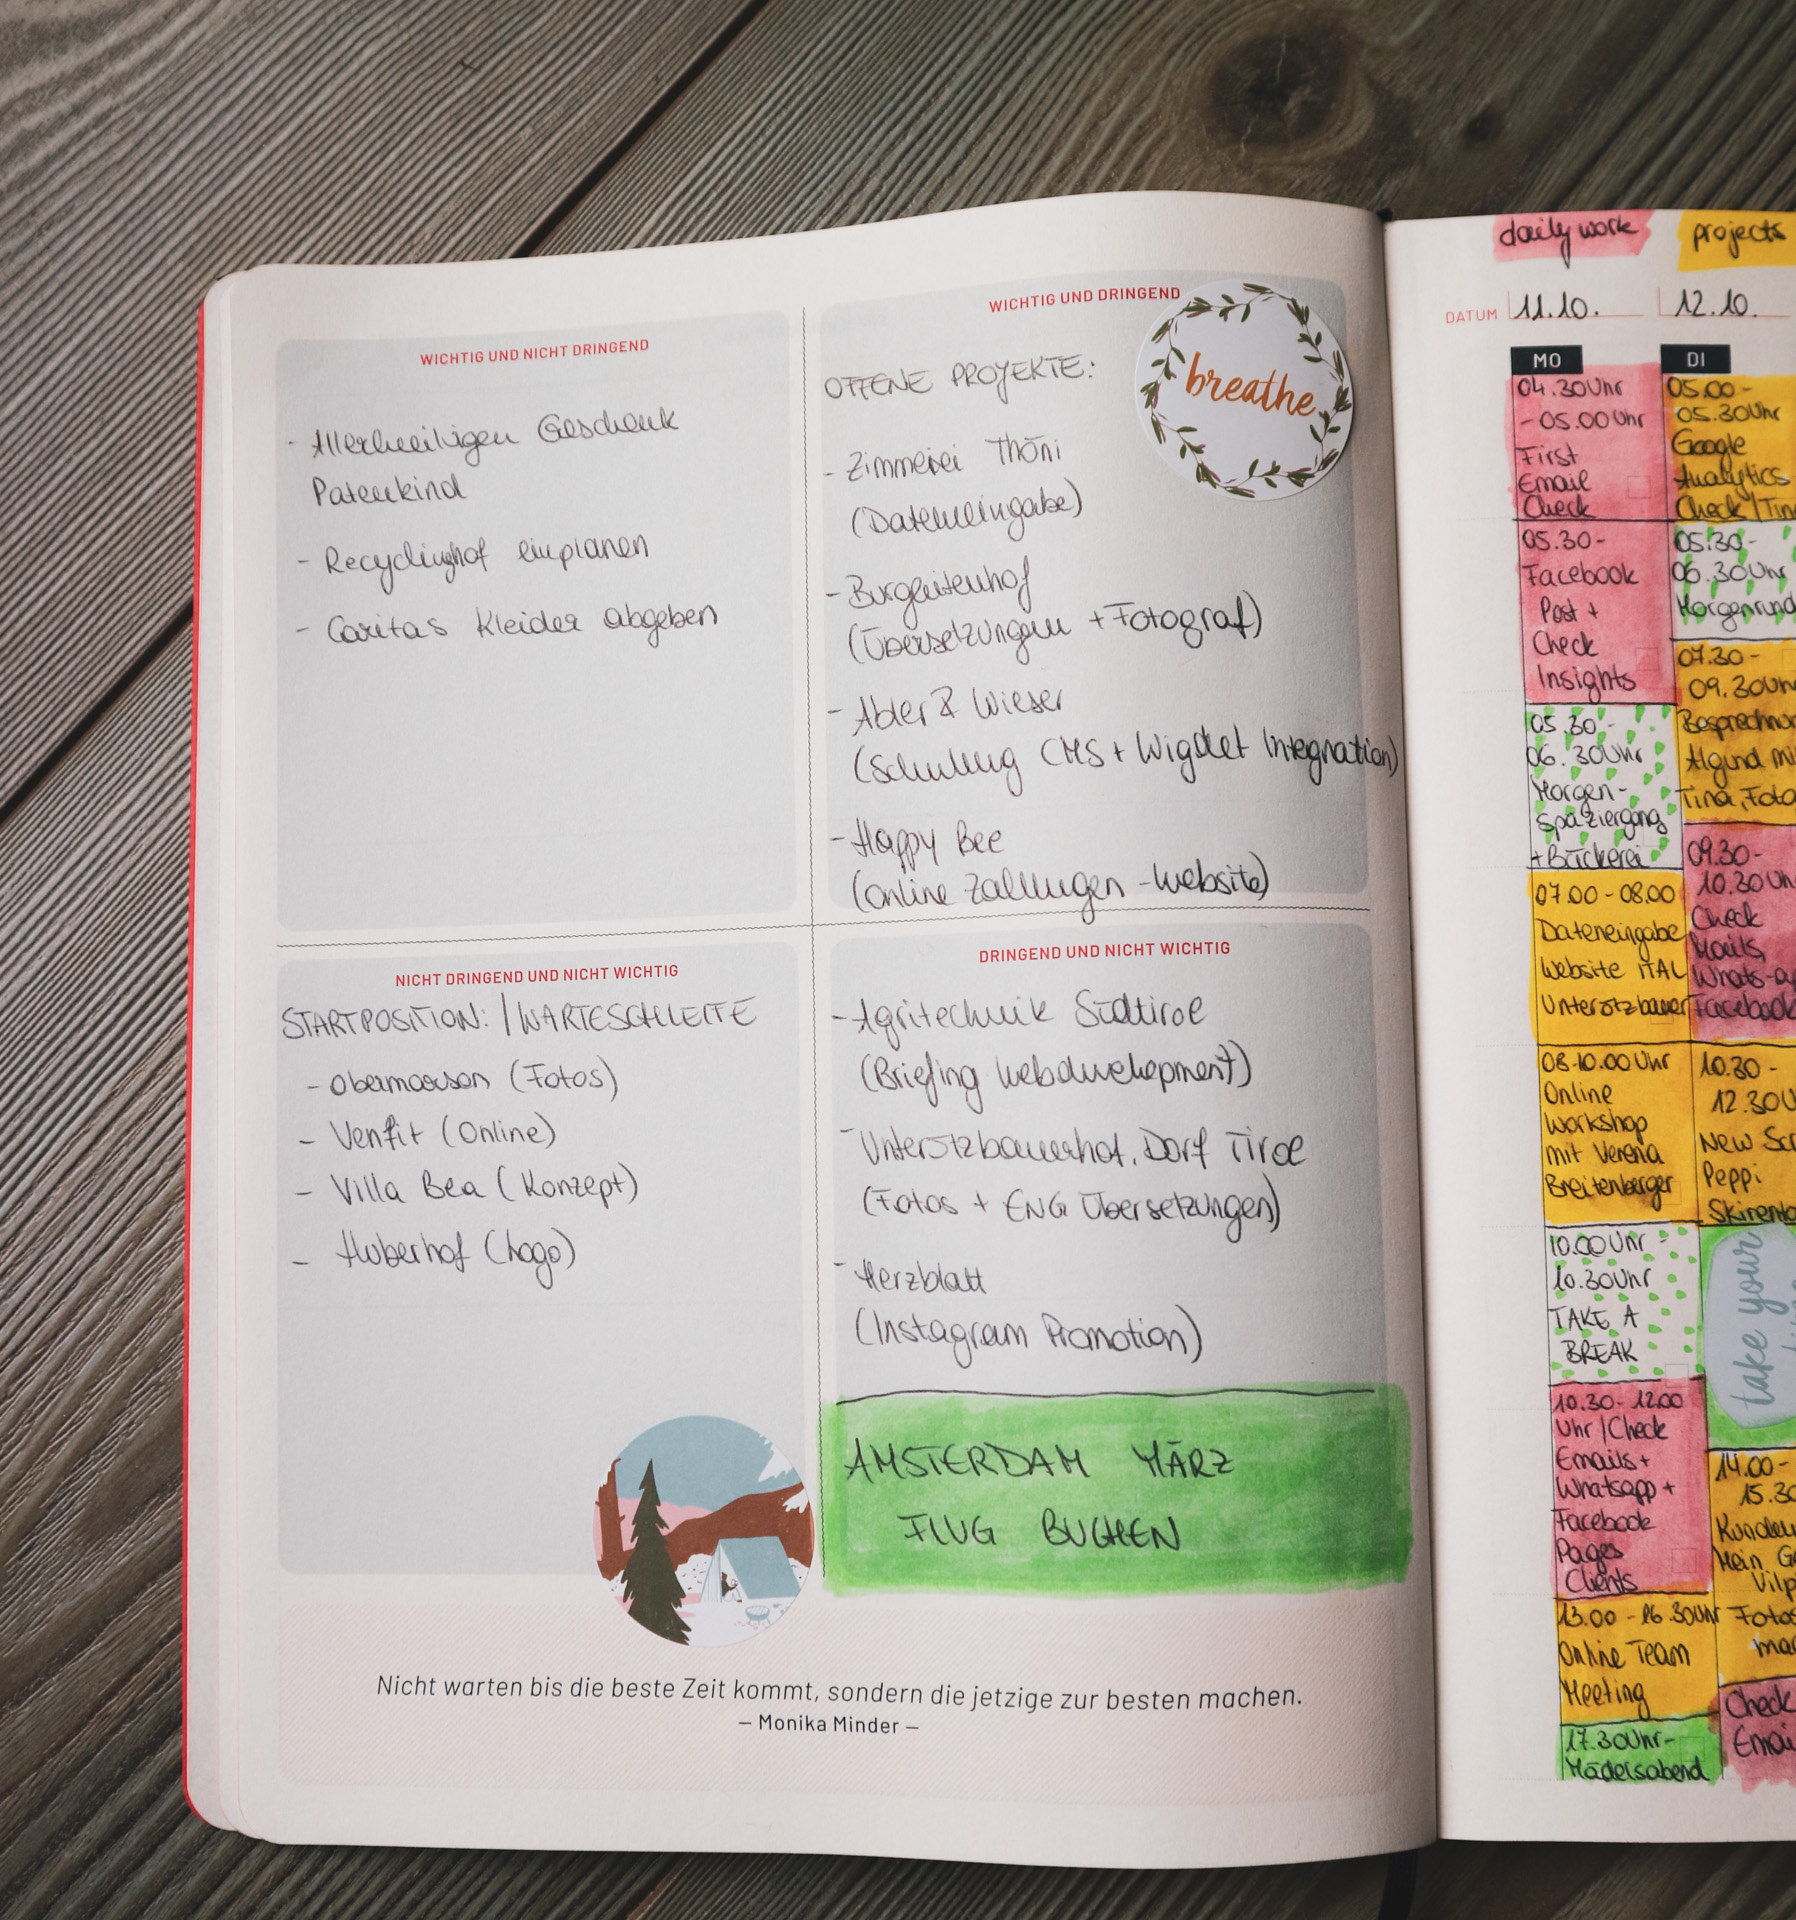 WICHTIG UND NICHT DRINGEND
- Allerheiligen Geschenk
Patenkind
- Recyclinghof einplanen
- Caritas Kleider abgeben
WICHTIG UND DRINGEND
breathe
OFFENE PROJEKTE:
- Zimmerei Thöni
(Dateneingabe)
- Burgleitenhof
(Übersetzungen + Fotograf)
- Abler & Wieser
(Schulung CMS + Wigdet Integration)
- Happy Bee
(Online Zahlungen - Website)
NICHT DRINGEND UND NICHT WICHTIG
STARTPOSITION: / WARTESCHLEIFE
- Obermoosen (Fotos)
- Venfit (Online)
- Villa Bea (Konzept)
- Huberhof (Logo)
DRINGEND UND NICHT WICHTIG
- Agritechnik Südtirol
(Briefing Webdevelopment)
- Unterötzbauerhof, Dorf Tirol
(Fotos + ENG Übersetzungen)
- Herzblatt
(Instagram Promotion)
AMSTERDAM MÄRZ
FLUG BUCHEN
Nicht warten bis die beste Zeit kommt, sondern die jetzige zur besten machen.
– Monika Minder –
daily work
projects
DATUM 11.10. 12.10.
MO
04.30 Uhr
- 05.00 Uhr
First
Email
Check
05.30-
Facebook
Post +
Check
Insights
05.30 -
06.30 Uhr
Morgen-
spaziergang
+ Bäckerei
07.00 - 08.00
Dateneingabe
Website ITAL
Unterötzbauer
08-10.00 Uhr
Online
Workshop
mit Verena
Breitenberger
10.00 Uhr -
10.30 Uhr
TAKE A
BREAK
10.30 - 12.00
Uhr / Check
Emails +
Whatsapp +
Facebook
Pages
Clients
13.00 - 16.30 Uhr
Online Team
Meeting
17.30 Uhr -
Mädelsabend
DI
05.00 -
05.30 Uhr
Google
Analytics
Check / Tin
05.30 -
06.30 Uhr
Morgenrund
07.30 -
09.30 Uh
Besprechnu
Algund mi
Tina, Foto
09.30 -
10.30 Uh
Check
Mails,
Whats-a
Facebook
10.30 -
12.30 U
New Sc
Peppi
Skirenta
take your
14.00 -
15.30
Kunden
Mein G
Vilp
Fotos
ma
Check
Emai